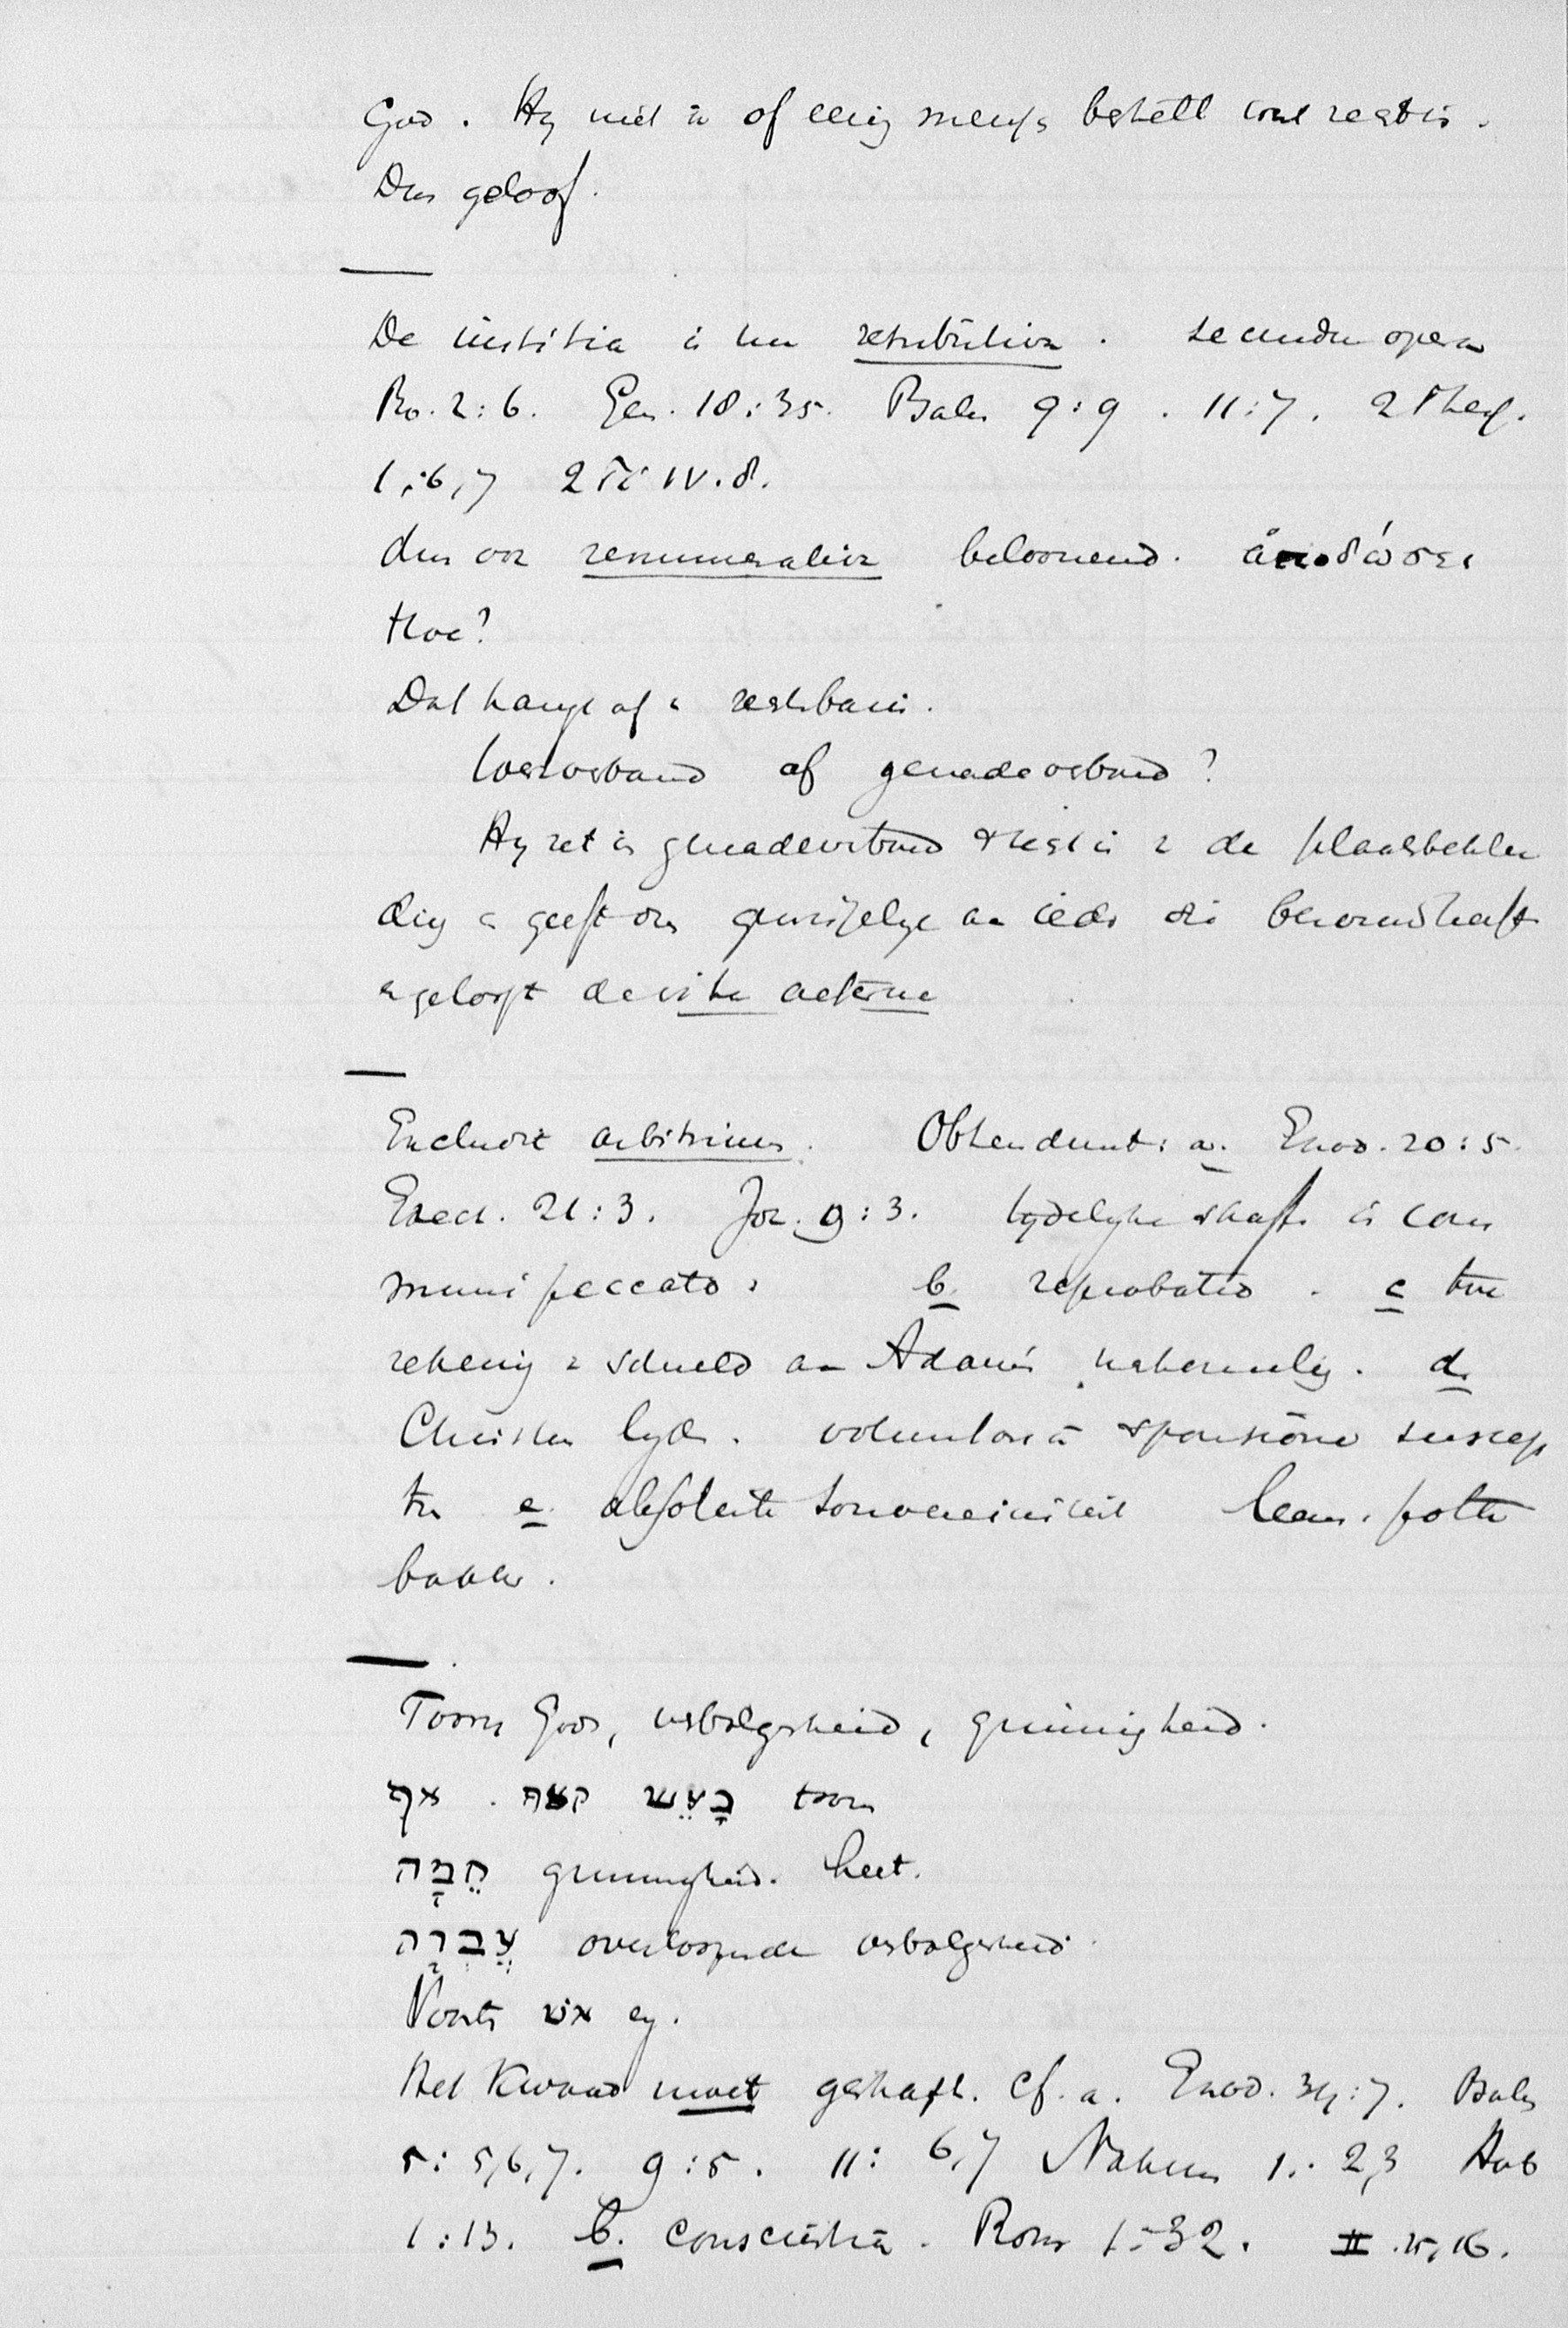 God. Hy niet is of eenig mensch betelt is.
Dus geloof.
De iustitia is nu retributiva. secundu opera
Ro. 2:6. Gen. 18:35. Psalm 9:9. 11:7. 2 Thess.
1:6,7 2 Ti IV.8.
dus ook remuneratior beloonend. ἀποδώσει
Hoe?
Dat hangt af v rechtbasis.
Werkverband of genadeverbond?
Hy zet in genadeverbond de plaatsbekle
ding geeft ons an ieder die berouw heeft
en gelooft de vita aeterna
Excludit arbitrium. Obtendunt: a. Exod. 20:5.
Ezech. 21:3. Joz. 9:3. tydelyke straffe is com
muni peccato. b. reprobatio. c toe
rekenig v schuld an Adam's nakomelig. d.
Christus lyde. voluntaria sponsione suscep
tu e. absolute souvereiniteit leem. potte
bakker.
Toorn Gods, verbolgenheid, grimmigheid.
אף . קצף כָעַשׂ toorn
חֵמָה grimmigheid. heet.
עֶבְרָה overloopende verbolgenheid
Voorts אש eg.
Het Kwaad moet gestraft. Cf. a. Exod. 34:7. Psalm
5: 5,6,7. 9:5. 11: 6,7 Nahum 1: 2,3 Hab
1:13. b. conscientia. Rom 1:32. II .15,16.